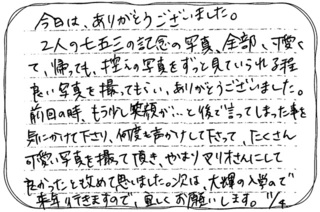 今日は、ありがとうございました。
2人の七五三の記念の写真、全部、可愛く
て、帰っても、控えの写真をずっと見ていられる程
良い写真を撮ってもらい、ありがとうございました。
前回の時、もう少し笑顔が…と後で言ってしまった事を
気にかけて下さり、何度も声かけして下さって、たくさん
可愛い写真を撮って頂き、やはりマリオさんにして
良かったと改めて思いました。次は、大輝の入学の で
来年 行きますので、宜しくお願いします。 11/4